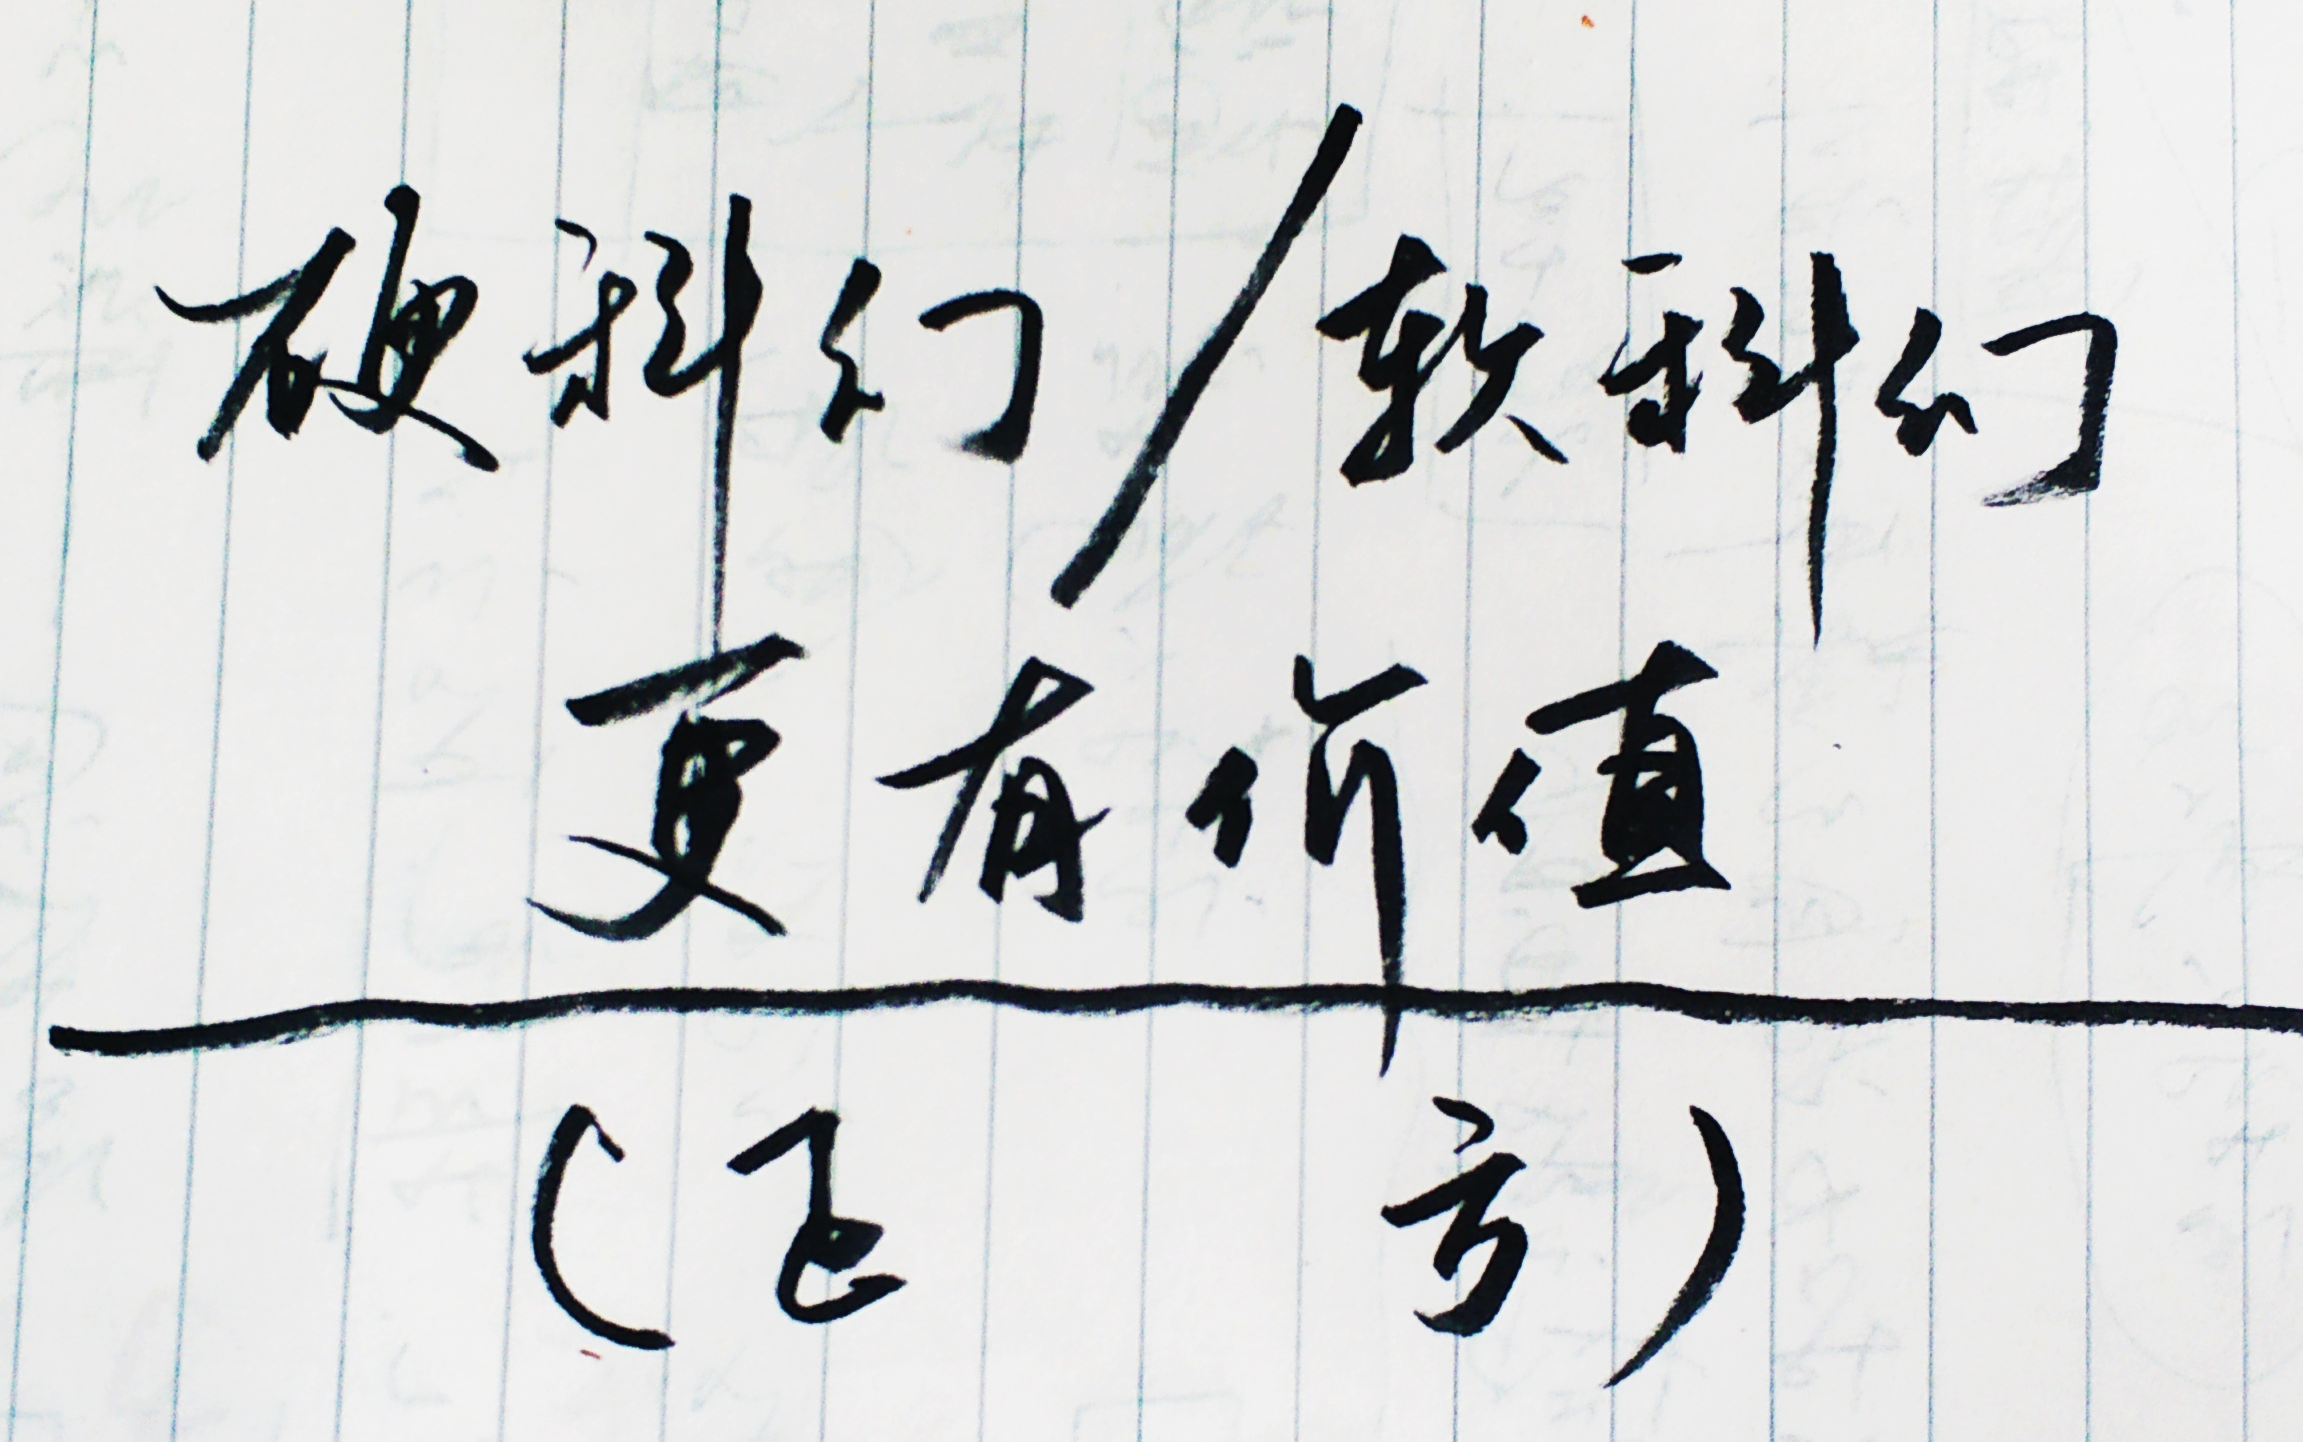 硬科幻/软科幻
更有价值
(正 方)